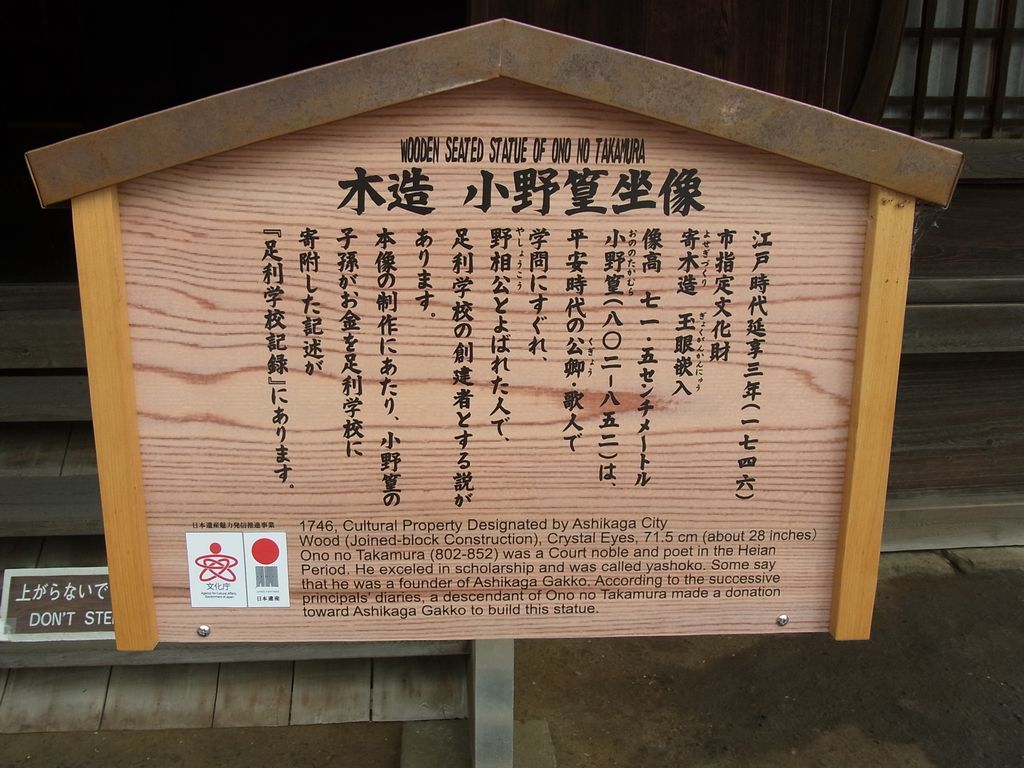 WOODEN SEATED STATUE OF ONO NO TAKAMURA
木造 小野篁坐像
江戸時代延享三年(一七四六)
市指定文化財
寄木造 玉眼嵌入
よせぎづくり ぎょくがんかんにゅう
像高 七一・五センチメートル
小野篁(八〇二ー八五二)は、
おののたかむら
平安時代の公卿・歌人で
くぎょう
学問にすぐれ、
野相公とよばれた人で、
やしょうこう
足利学校の創建者とする説が
あります。
本像の制作にあたり、小野篁の
子孫がお金を足利学校に
寄附した記述が
『足利学校記録』にあります。
日本遺産魅力発信推進事業
文化庁
日本遺産
1746, Cultural Property Designated by Ashikaga City
Wood (Joined-block Construction), Crystal Eyes, 71.5 cm (about 28 inches)
Ono no Takamura (802-852) was a Court noble and poet in the Heian
Period. He exceled in scholarship and was called yashoko. Some say
that he was a founder of Ashikaga Gakko. According to the successive
principals' diaries, a descendant of Ono no Takamura made a donation
toward Ashikaga Gakko to build this statue.
上がらないで
DON'T STE